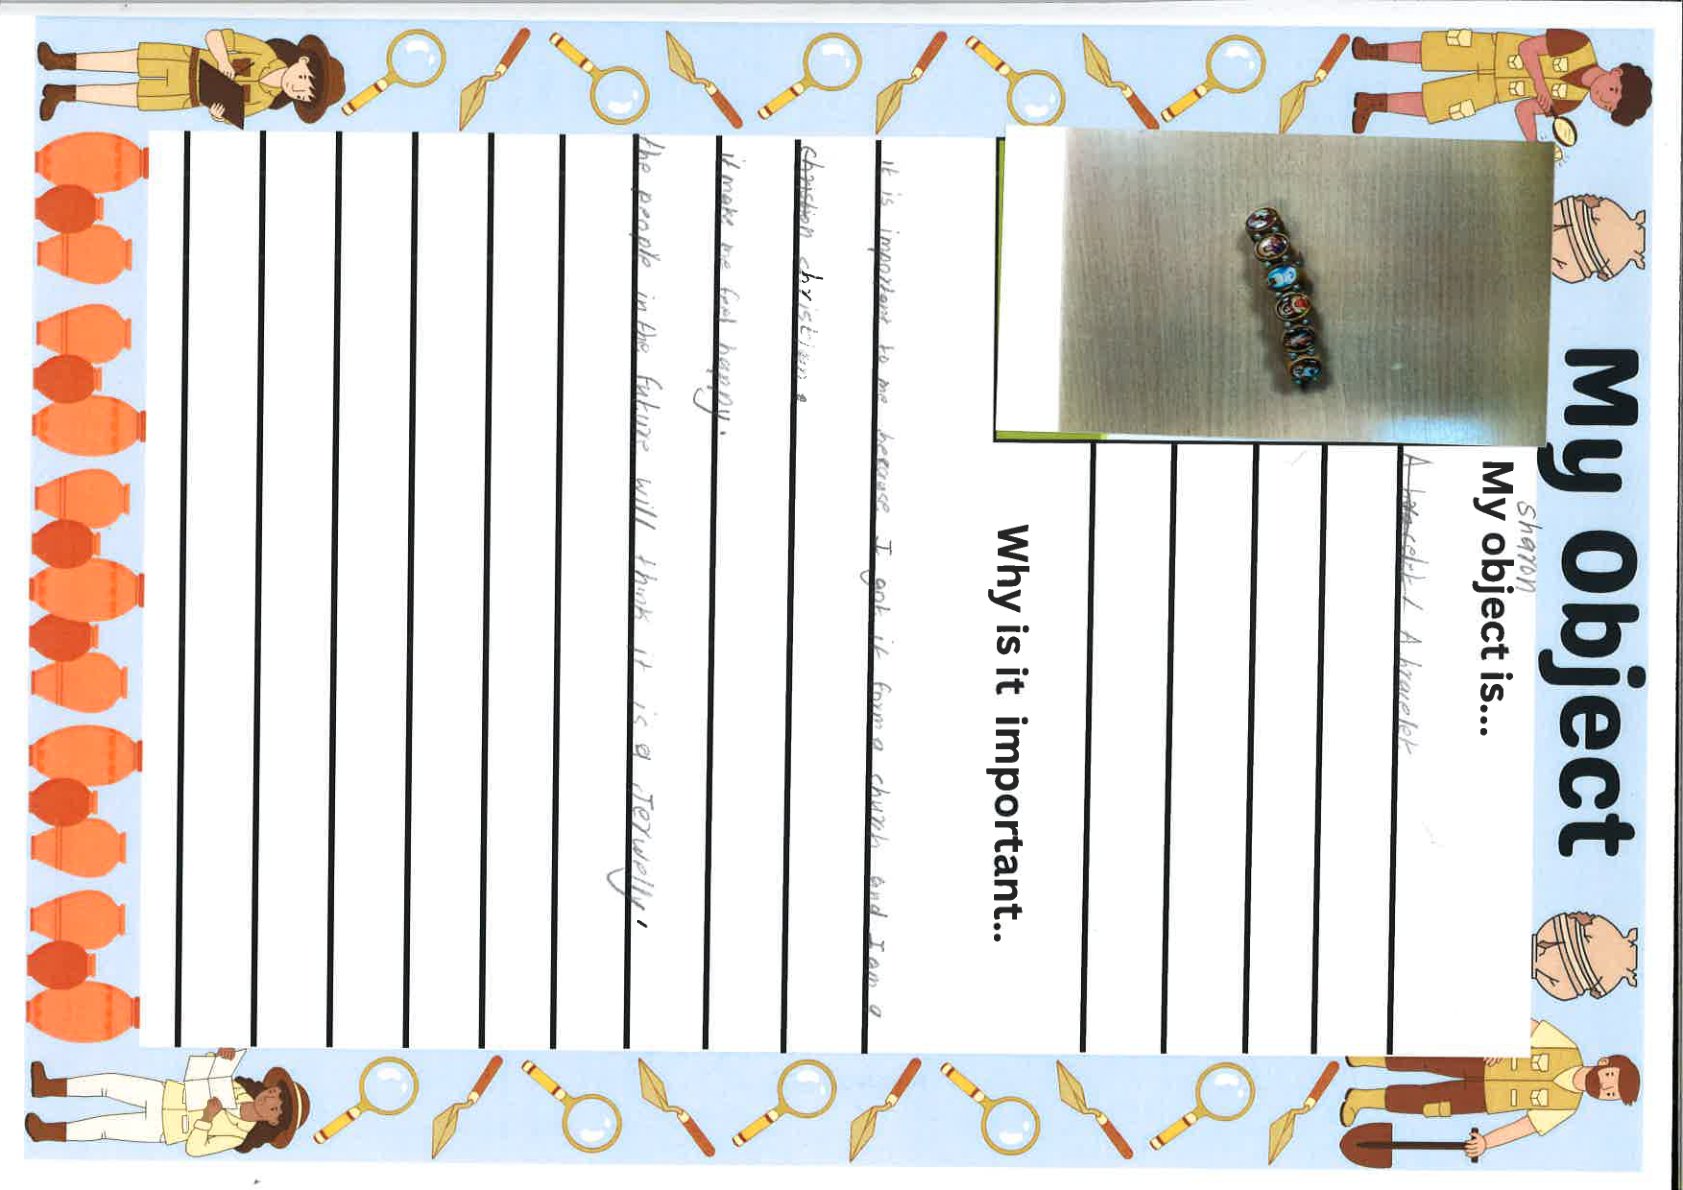 My Object
sharon
My object is...
A bracelet / A bracelet
Why is it important..
it is important to me because I got it form a church and I am a
christion christian.
it make me feel happy.
the people in the future will think it is a Jerwelly.